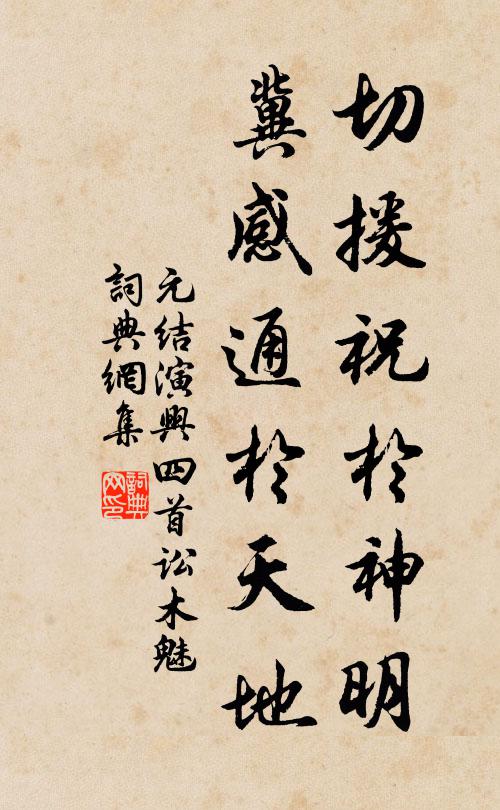 切援祝於神明
冀感通於天地
元结演興四首讼木魅
詞典網集
詞典網印